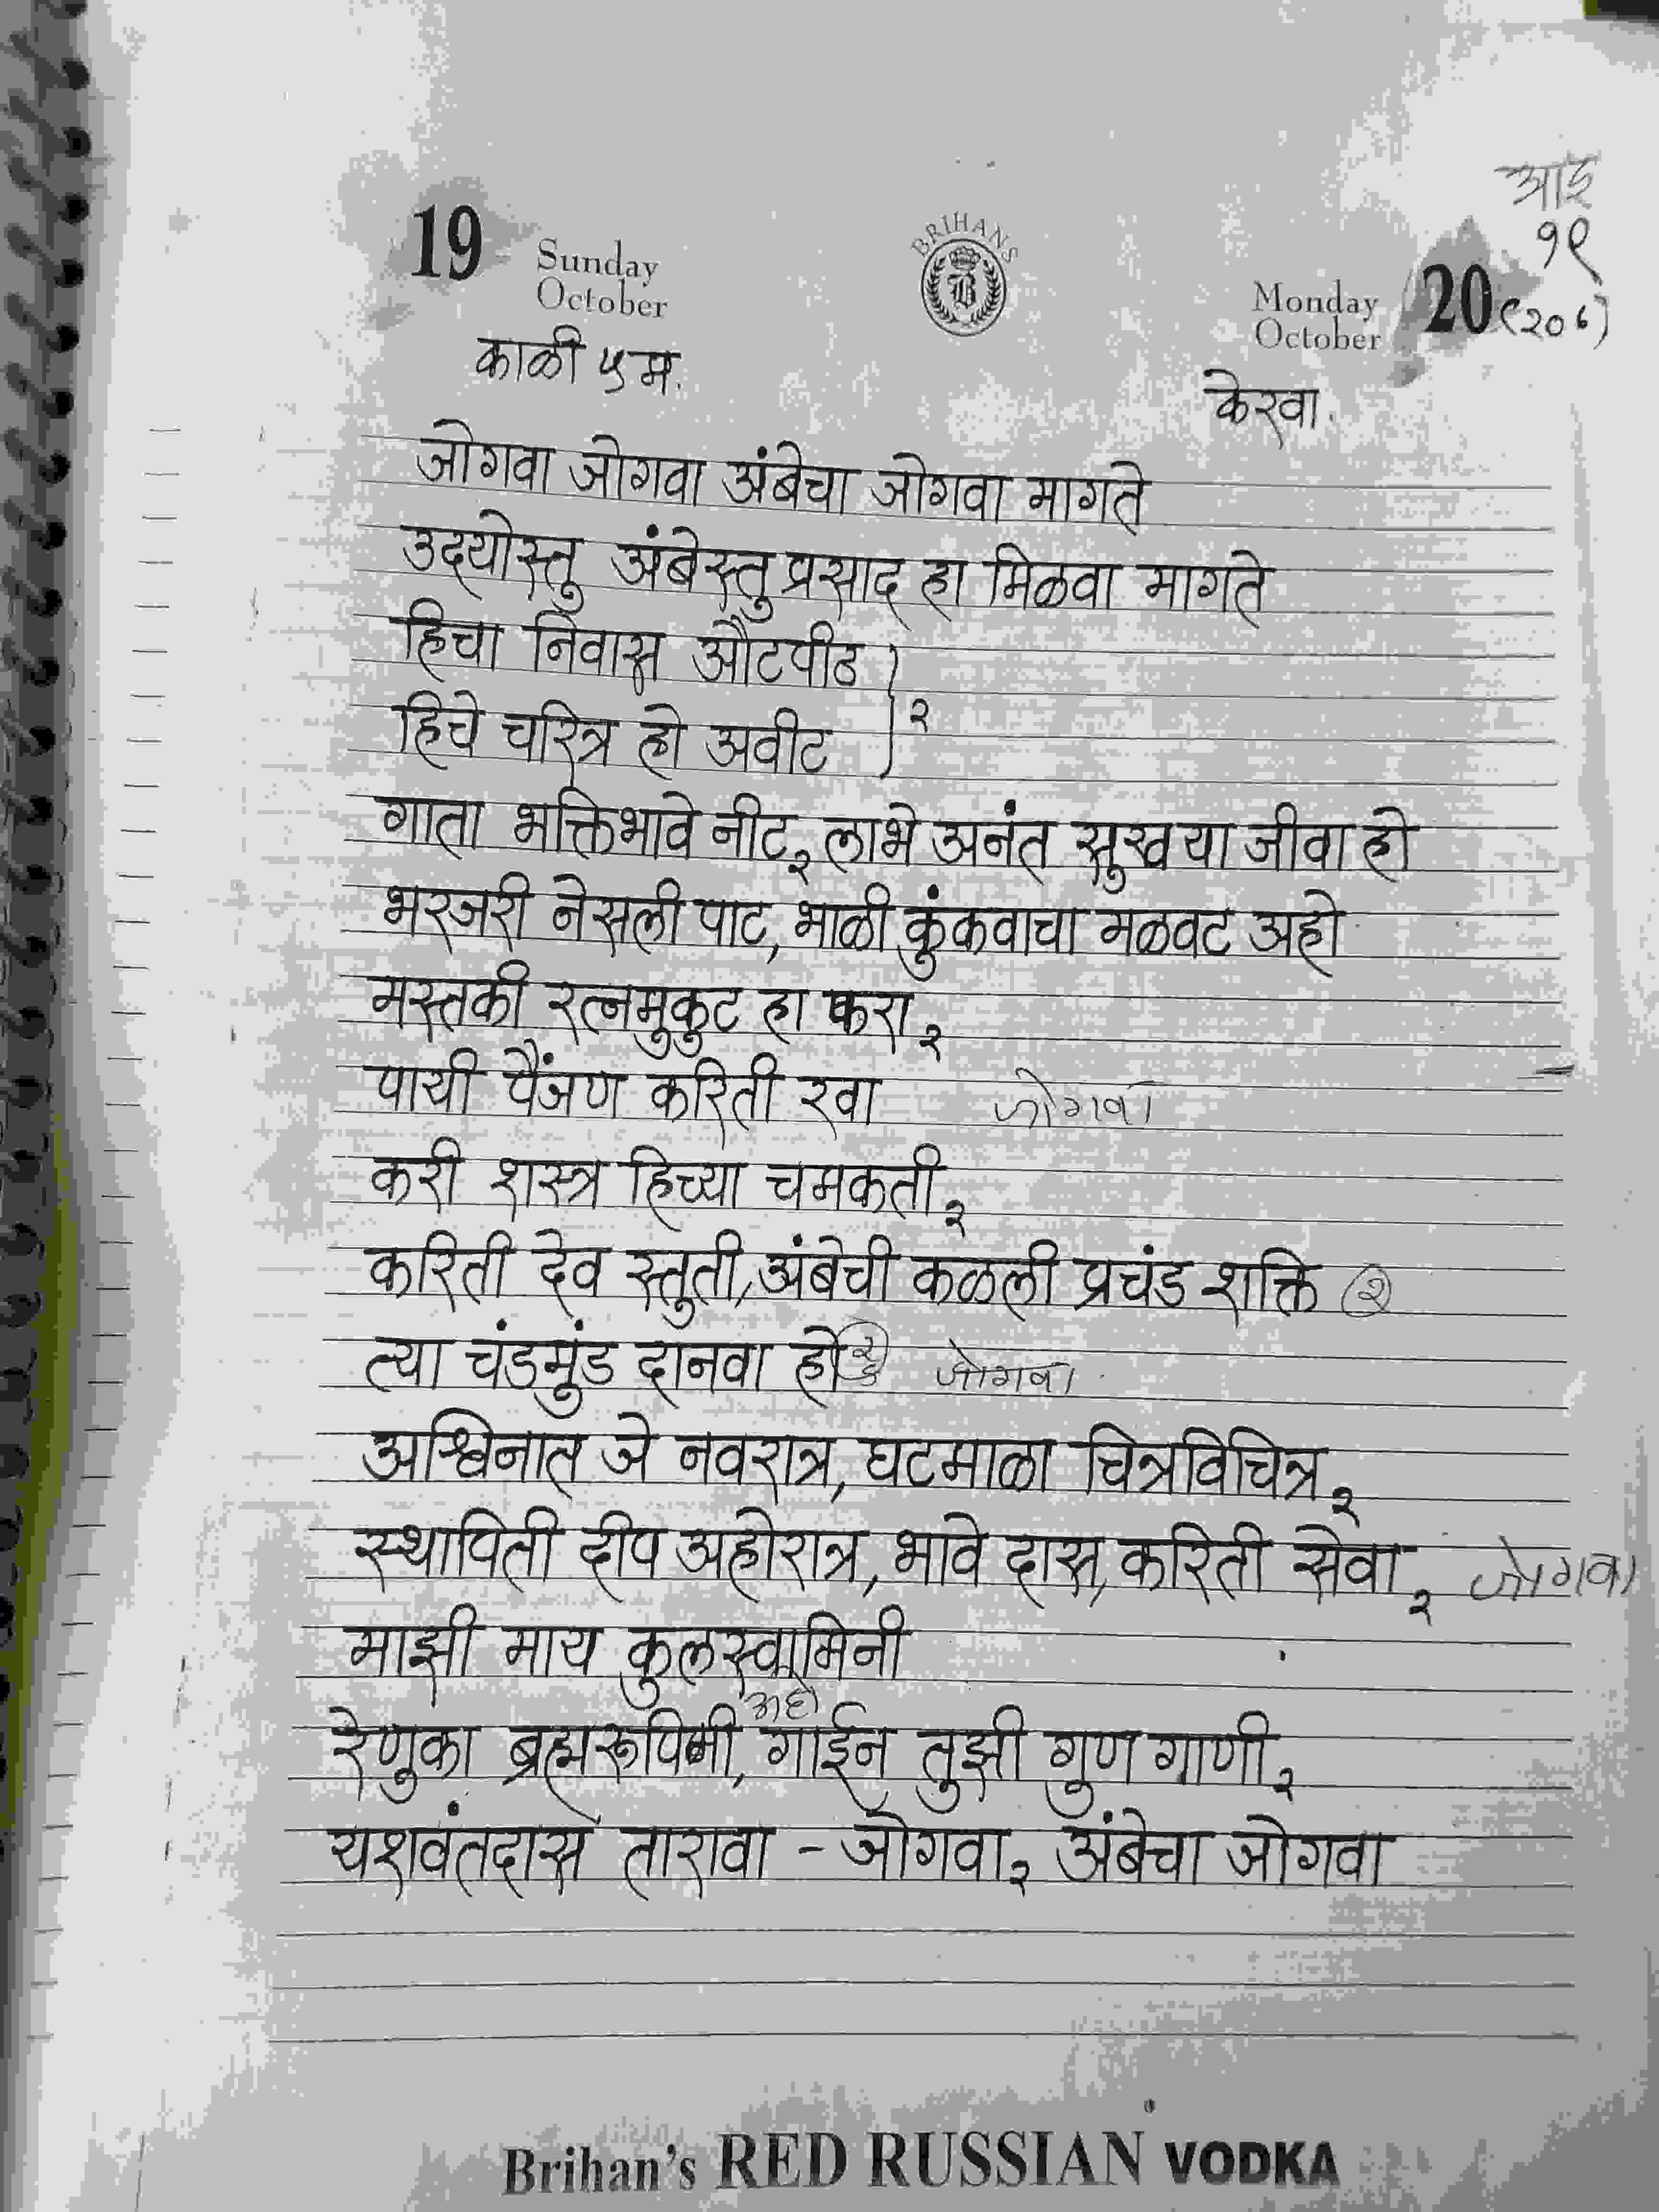 आई
१९
19 Sunday October
BRIHANS
Monday October 20 (२०६)
काळी एम.
केरवा.
जोगवा जोगवा अंबेचा जोगवा मागते
उदयोस्तु अंबेस्तु प्रसाद हा मिळवा मागते
हिचा निवास औटपीठ
हिचे चरित्र हो अवीट } २
गाता भक्तिभावे नीट,२ लाभे अनंत सुख या जीवा हो
भरजरी नेसली पाट, भाळी कुंकवाचा मळवट अहो
मस्तकी रत्नमुकुट हा करा,२
पायी पैंजण करिती रवा जोगवा
करी शस्त्र हिच्या चमकती,२
करिती देव स्तुती, अंबेची कळली प्रचंड शक्ति २
त्या चंडमुंड दानवा हो जोगवा
अश्विनात जे नवरात्र, घटमाळा चित्रविचित्र,२
स्थापिती दीप अहोरात्र, भावे दास, करिती सेवा,२ जोगवा
माझी माय कुलस्वामिनी
अहो
रेणुका ब्रह्मरूपिणी, गाईन तुझी गुण गाणी,२
यशवंतदास तारावा - जोगवा,२ अंबेचा जोगवा
Brihan's RED RUSSIAN VODKA